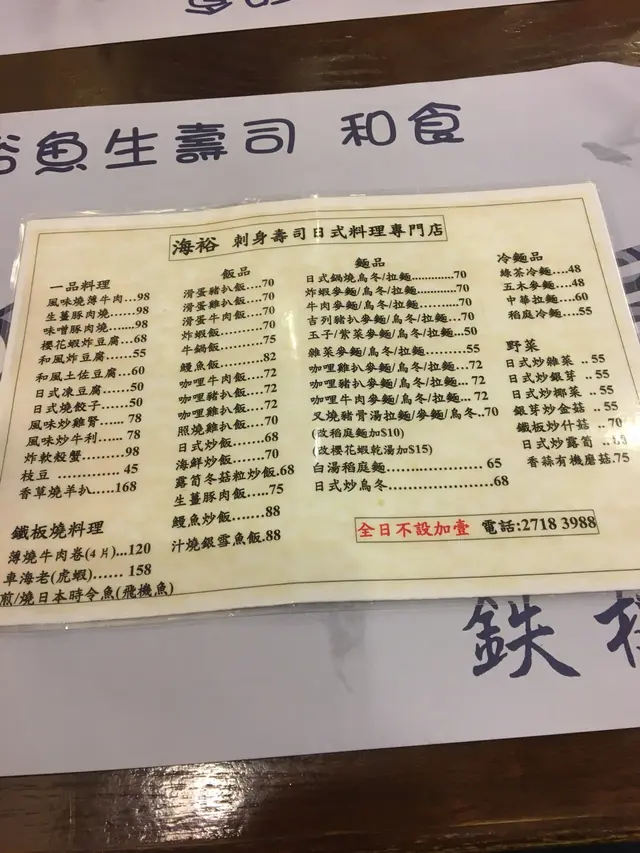 魚生壽司 和食
海裕 刺身壽司日式料理專門店
一品料理
風味燒薄牛肉...98
生薑豚肉燒......98
味噌豚肉燒......98
櫻花蝦炸豆腐...68
和風炸豆腐......55
和風土佐豆腐..60
日式凍豆腐......50
日式燒餃子......50
風味炒雞腎...... 78
風味炒牛利...... 78
炸軟殼蟹.........98
枝豆 ............45
香草燒羊扒.....168
鐵板燒料理
薄燒牛肉卷(4片)...120
車海老(虎蝦)...... 158
煎/燒日本時令魚(飛機魚)
飯品
滑蛋豬扒飯.....70
滑蛋雞扒飯.....70
滑蛋牛肉飯.....70
炸蝦飯...........70
牛鍋飯...........75
鰻魚飯...........82
咖哩牛肉飯.....72
咖哩豬扒飯.....72
咖哩雞扒飯.....72
照燒雞扒飯.....70
日式炒飯........68
海鮮炒飯........70
露筍冬菇粒炒飯.68
生薑豚肉飯.....75
鰻魚炒飯........88
汁燒銀雪魚飯.88
麵品
日式鍋燒烏冬/拉麵............70
炸蝦麥麵/烏冬/拉麵..........70
牛肉麥麵/烏冬/拉麵..........70
吉列豬扒麥麵/烏冬/拉麵....70
玉子/紫菜麥麵/烏冬/拉麵...50
雜菜麥麵/烏冬/拉麵..........55
咖哩雞扒麥麵/烏冬/拉麵...72
咖哩豬扒麥麵/烏冬/拉麵... 72
咖哩牛肉麥麵/烏冬/拉麵... 72
叉燒豬骨湯拉麵/麥麵/烏冬..70
(改稻庭麵加$10)
(改櫻花蝦乾湯加$15)
白湯稻庭麵..................... 65
日式炒烏冬.......................68
冷麵品
綠茶冷麵....48
五木麥麵....48
中華拉麵....60
稻庭冷麵....55
野菜
日式炒雜菜 .. 55
日式炒銀芽 .. 55
日式炒椰菜 .. 55
銀芽炒金菇 .. 55
鐵板炒什菇.. 70
日式炒露筍
香蒜有機蘑菇.75
全日不設加壹 電話:2718 3988
鉄